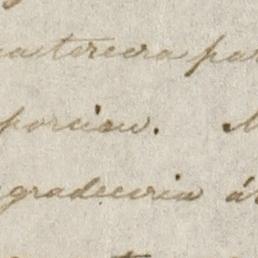 a tercera par
porcion. M
gradeceria á